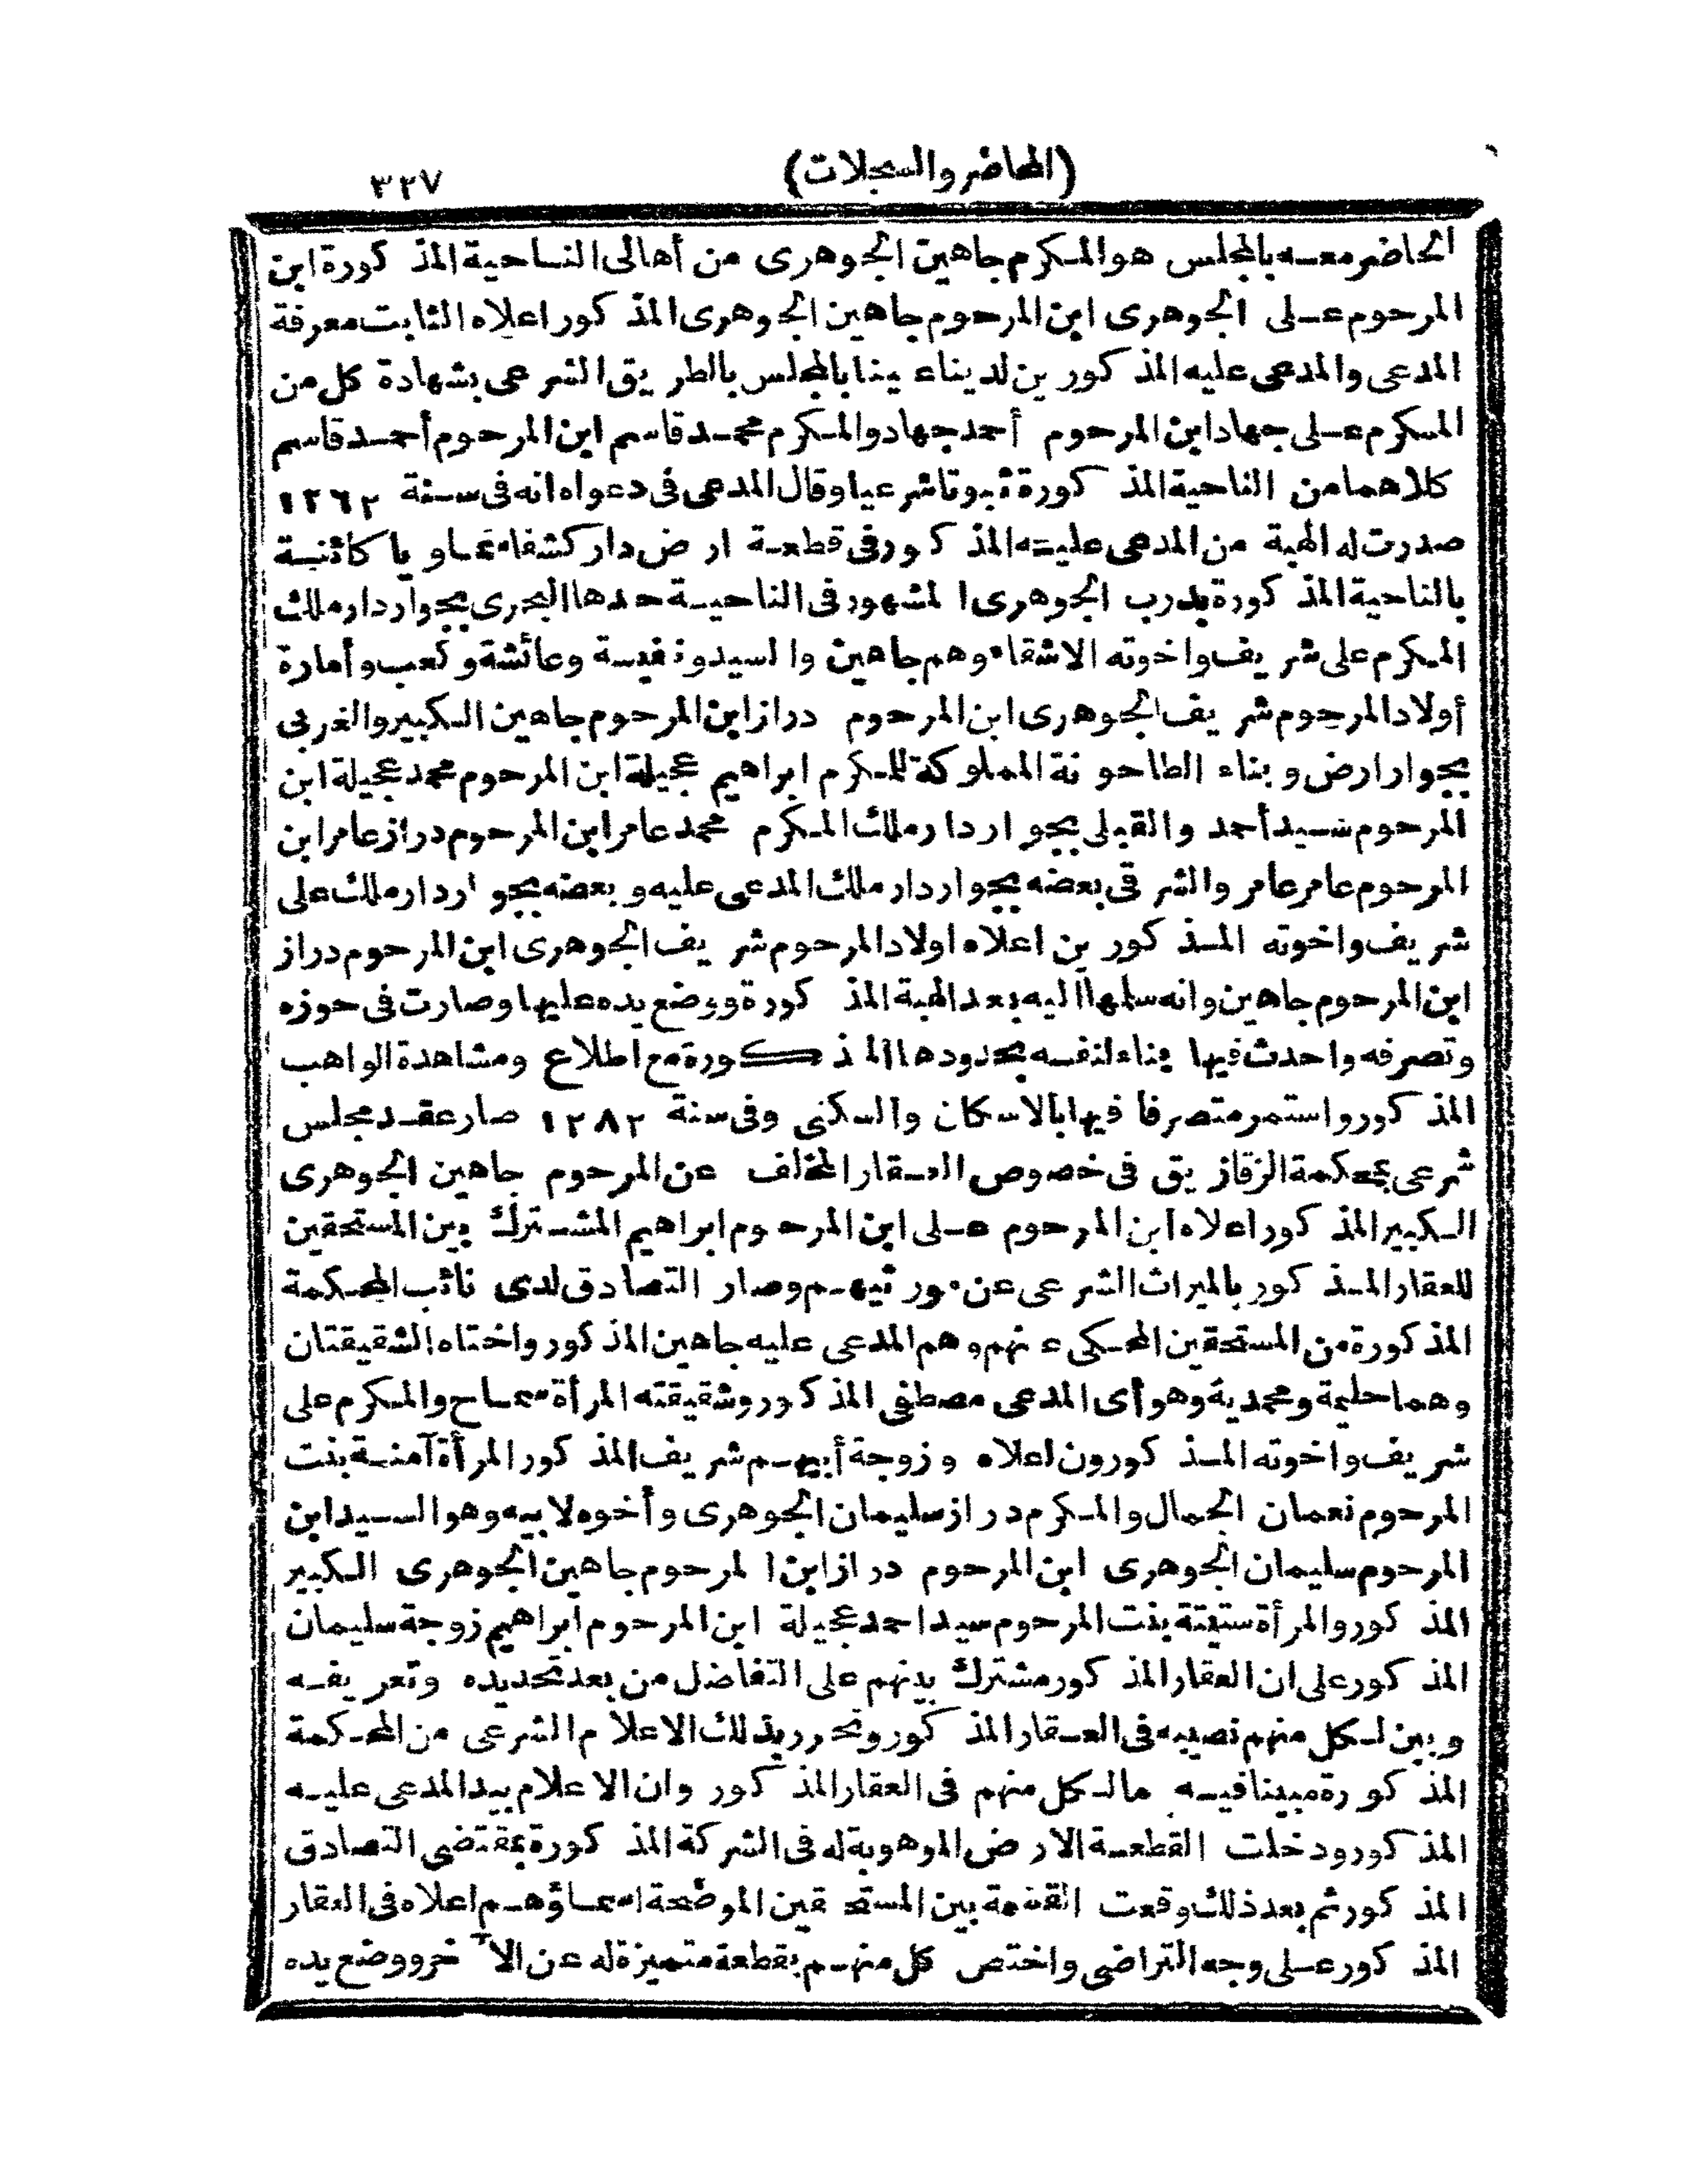 (المحاضر والسجلات) ٣٢٧
الحاضر معه بالمجلس هو المكرم جاهين الجوهرى من أهالى الناحية المذكورة ابن
المرحوم على الجوهرى ابن المرحوم جاهين الجوهرى المذكور اعلاه الثابت معرفة
المدعى والمدعى عليه المذكورين لدينا عينا بالمجلس بالطريق الشرعى بشهادة كل من
المكرم على جهاد ابن المرحوم أحمد جهاد والمكرم محمد قاسم ابن المرحوم أحمد قاسم
كلاهما من الناحية المذكورة ثبوتا شرعيا وقال المدعى فى دعواه انه فى سنة ١٢٦٢
صدرت له الهبة من المدعى عليه المذكور فى قطعة ارض دار كشفا سماويا كائنة
بالناحية المذكورة بدرب الجوهرى المشهور فى الناحية حدها البحرى بجوار دار ملك
المكرم على شريف واخوته الاشقاء وهم جاهين والسيد ونفيسة وعائشة وكعب وأمارة
أولاد المرحوم شريف الجوهرى ابن المرحوم دراز ابن المرحوم جاهين الكبير والغربى
بجوار ارض وبناء الطاحونة المملوكة للمكرم ابراهيم عجيلة ابن المرحوم محمد عجيلة ابن
المرحوم سيد أحمد والقبلى بجوار دار ملك المكرم محمد عامر ابن المرحوم دراز عامر ابن
المرحوم عامر عامر والشرقى بعضه بجوار دار ملك المدعى عليه وبعضه بجوار دار ملك على
شريف واخوته المذكورين اعلاه اولاد المرحوم شريف الجوهرى ابن المرحوم دراز
ابن المرحوم جاهين وانه سلمها اليه بعد الهبة المذكورة ووضع يده عليها وصارت فى حوزه
وتصرفه واحدث فيها بناء لنفسه بحدودها المذكورة مع اطلاع ومشاهدة الواهب
المذكور واستمر متصرفا فيها بالاسكان والسكنى وفى سنة ١٢٨٢ صار عقد مجلس
شرعى بمحكمة الزقازيق فى خصوص العقار المخلف عن المرحوم جاهين الجوهرى
الكبير المذكور اعلاه ابن المرحوم على ابن المرحوم ابراهيم المشترك بين المستحقين
للعقار المذكور بالميراث الشرعى عن مورثيهم وصار التصادق لدى نائب المحكمة
المذكورة من المستحقين المحكى عنهم وهم المدعى عليه جاهين المذكور واختاه الشقيقتان
وهما حليمة ومحمدية وهو أى المدعى مصطفى المذكور وشقيقته المرأة سماح والمكرم على
شريف واخوته المذكورون اعلاه وزوجة أبيهم شريف المذكور المرأة آمنة بنت
المرحوم نعمان الجمال والمكرم دراز سليمان الجوهرى وأخوه لابيه وهو السيد ابن
المرحوم سليمان الجوهرى ابن المرحوم دراز ابن المرحوم جاهين الجوهرى الكبير
المذكور والمرأة ستيتة بنت المرحوم سيد احمد عجيلة ابن المرحوم ابراهيم زوجة سليمان
المذكور على ان العقار المذكور مشترك بينهم على التفاضل من بعد تحديده وتعريفه
وبين لكل منهم نصيبه فى العقار المذكور وتحرر بذلك الاعلام الشرعى من المحكمة
المذكورة مبينا فيه مالكل منهم فى العقار المذكور وان الاعلام بيد المدعى عليه
المذكور ودخلت القطعة الارض الموهوبة له فى الشركة المذكورة بمقتضى التصادق
المذكور ثم بعد ذلك وقعت القسمة بين المستحقين الموضحة اسماؤهم اعلاه فى العقار
المذكور على وجه التراضى واختص كل منهم بقطعة متميزة له عن الآخر ووضع يده